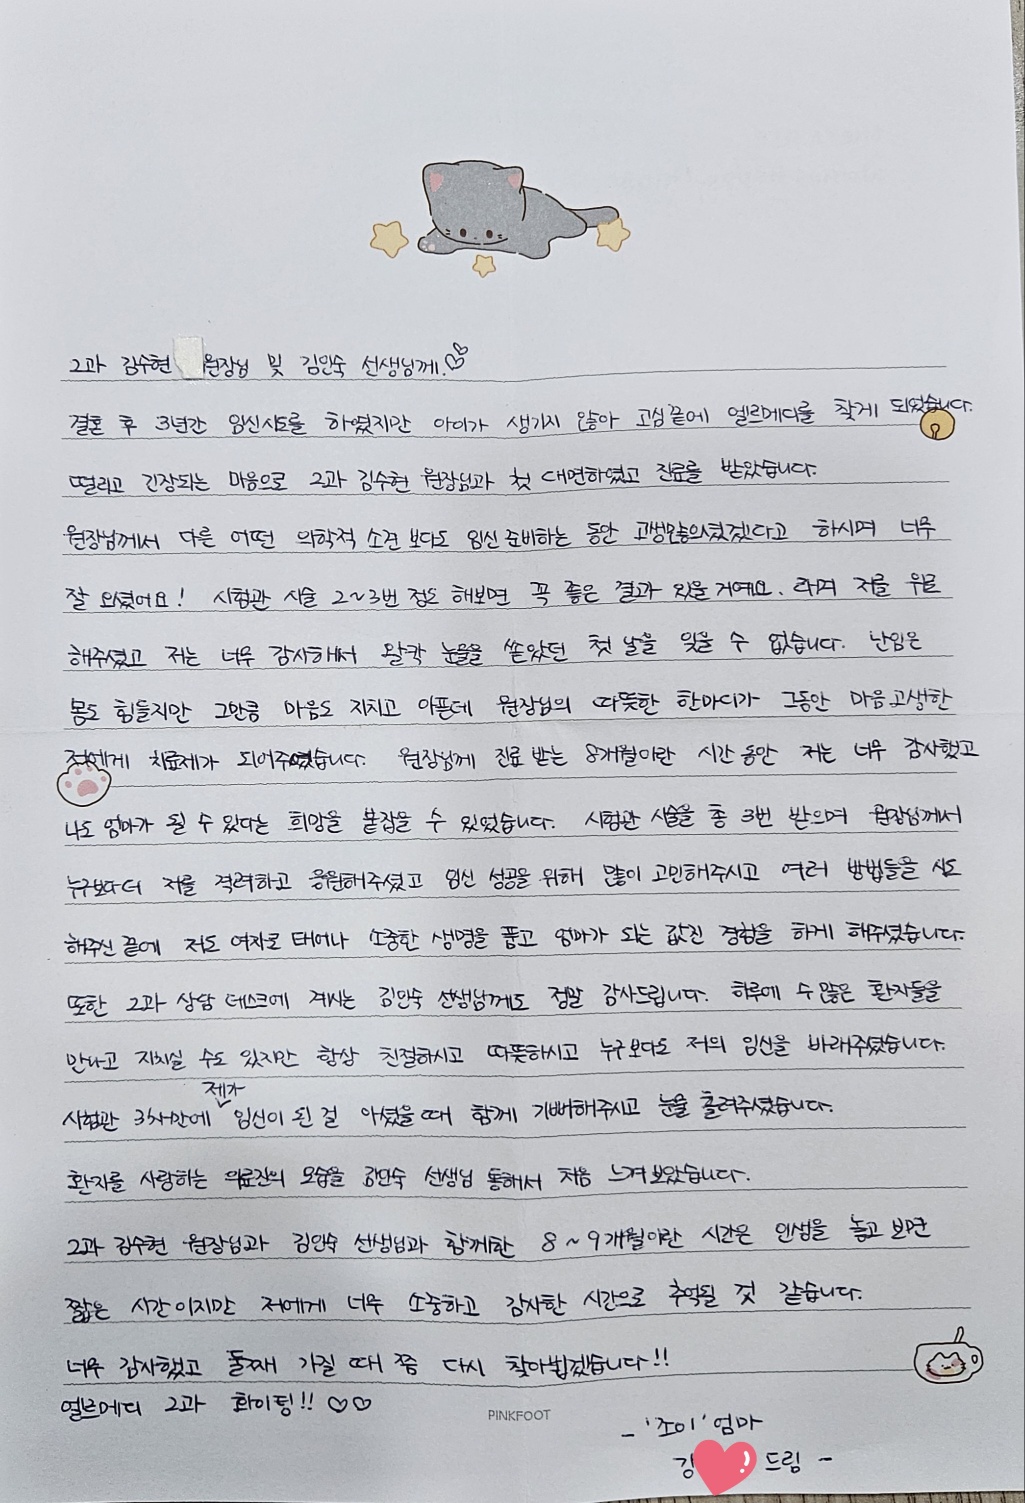 2과 김수현 원장님 및 김인숙 선생님께.
결혼 후 3년간 임신시도를 하였지만 아이가 생기지 않아 고심끝에 엘르메디를 찾게 되었습니다.
떨리고 긴장되는 마음으로 2과 김수현 원장님과 첫 대면하였고 진료를 받았습니다.
원장님께서 다른 어떤 의학적 소견 보다도 임신 준비하는 동안 고생많으셨겠다고 하시며 너무
잘 오셨어요! 시험관 시술 2~3번 정도 해보면 꼭 좋은 결과 있을거예요. 라며 저를 위로
해주셨고 저는 너무 감사해서 왈칵 눈물을 쏟았던 첫 날을 잊을 수 없습니다. 난임은
몸도 힘들지만 그만큼 마음도 지치고 아픈데 원장님의 따뜻한 한마디가 그동안 마음고생한
저에게 치료제가 되어주었습니다. 원장님께 진료 받는 8개월이란 시간동안 저는 너무 감사했고
나도 엄마가 될 수 있다는 희망을 붙잡을 수 있었습니다. 시험관 시술을 총 3번 받으며 원장님께서
누구보다 더 저를 격려하고 응원해주셨고 임신 성공을 위해 많이 고민해주시고 여러 방법들을 시도
해주신 끝에 저도 여자로 태어나 소중한 생명을 품고 엄마가 되는 값진 경험을 하게 해주셨습니다.
또한 2과 상담 데스크에 계시는 김인숙 선생님께도 정말 감사드립니다. 하루에 수 많은 환자들을
만나고 지치실 수도 있지만 항상 친절하시고 따뜻하시고 누구보다도 저의 임신을 바래주셨습니다.
시험관 3차만에 제가 임신이 된 걸 아셨을 때 함께 기뻐해주시고 눈물 흘려주셨습니다.
환자를 사랑하는 의료진의 모습을 김인숙 선생님 통해서 처음 느껴보았습니다.
2과 김수현 원장님과 김인숙 선생님과 함께한 8~9개월이란 시간은 인생을 놓고 보면
짧은 시간이지만 저에게 너무 소중하고 감사한 시간으로 추억될 것 같습니다.
너무 감사했고 둘째 가질 때 쯤 다시 찾아뵙겠습니다!!
엘르메디 2과 화이팅!! ♡♡
PINKFOOT
- '조이' 엄마
김 드림 -